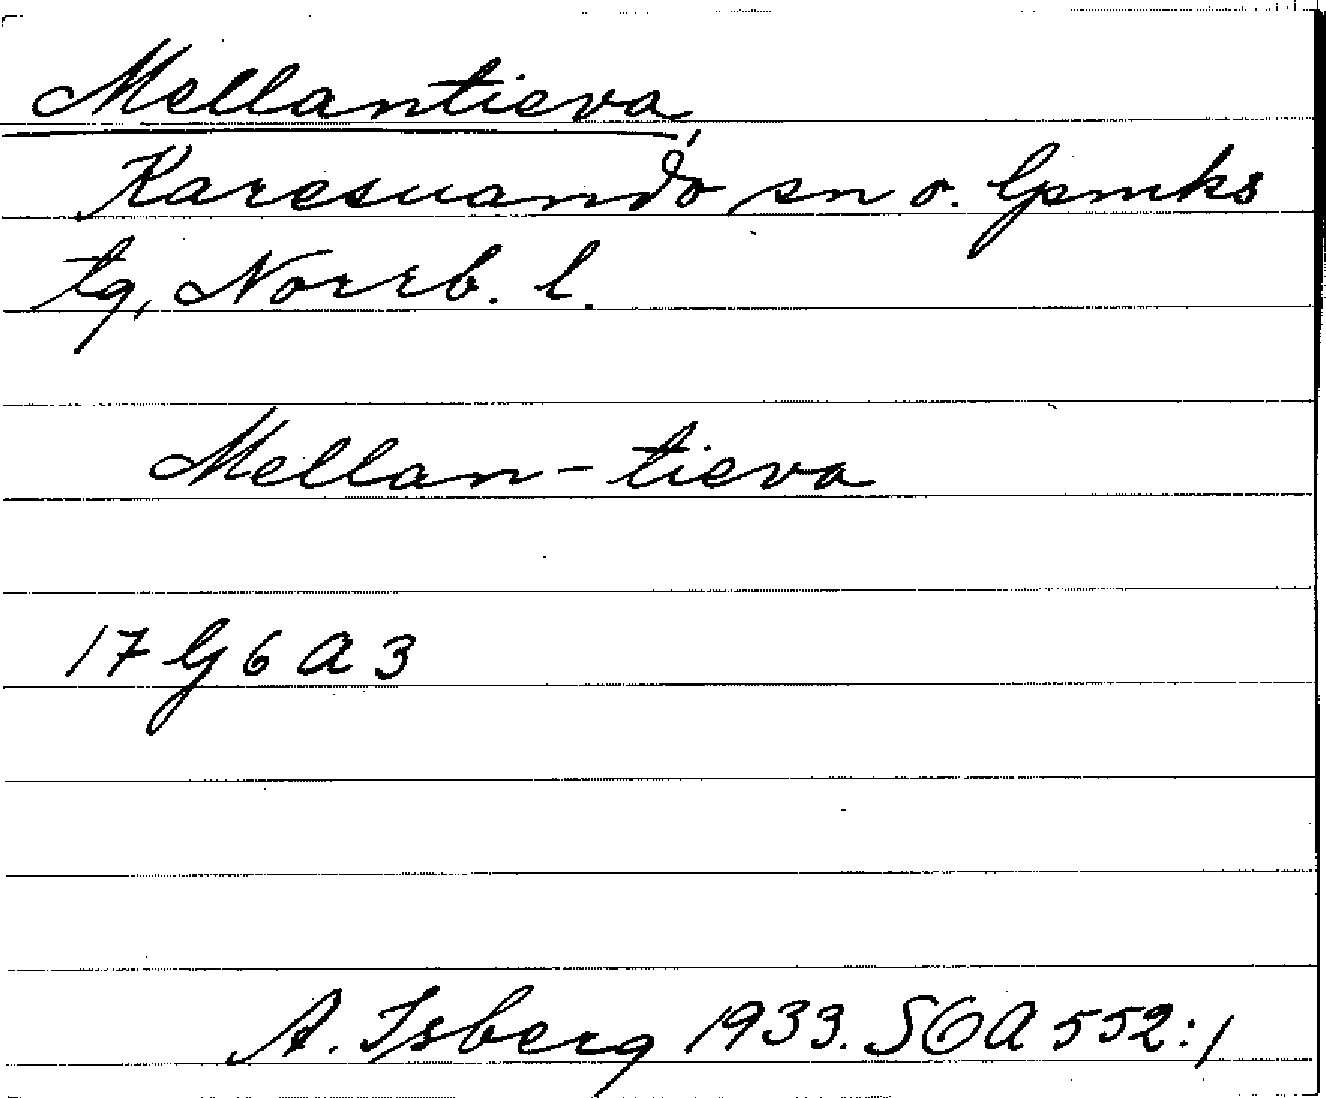 Mellantieva,
Karesuando sn o. lpmks
tg, Norrb. l.
Mellan-tieva
17 G 6 a 3
A. Isberg 1933. SOA 552:1